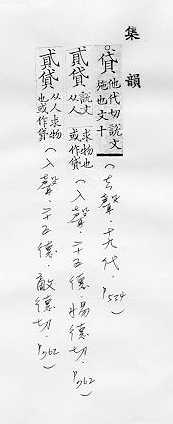 集韻
○貸 他代切說文施也文十 (去聲.十九代.P534)
貣貸 說文从人求物也或作貸 (入聲.二十五德.惕德切.P762)
貣貸 从人求物也或作貸 (入聲.二十五德.敵德切.P762)